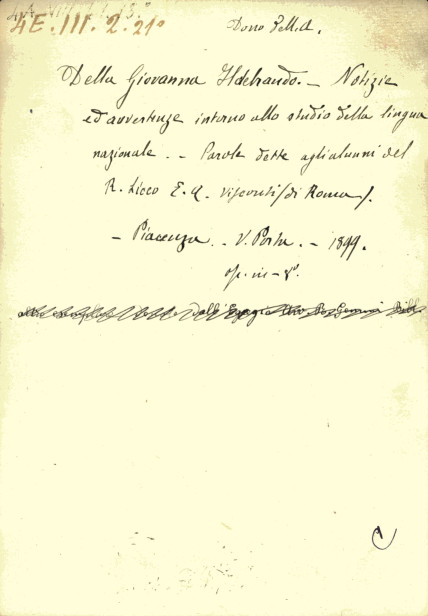 4E. III. 2. 21°
Dono dell'A.
Della Giovanna Ildebrando. - Notizie
ed avvertenze intorno allo studio della lingua
nazionale. - Parole dette agli alunni del
R. Liceo E. Q. Visconti di Roma.
- Piacenza. - V. Porta. - 1899.
op. in - 8°.